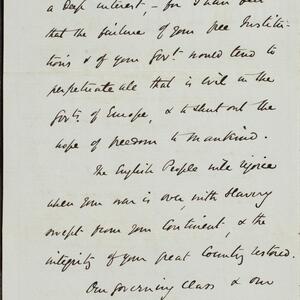 a deep interest, - for I have felt
that the failure of your free Institu-
tions & of your Govt. would tend to
perpetuate all that is evil in the
Govts. of Europe, & to shut out the
hope of freedom to mankind.
The English People will rejoice
when your war is over, with Slavery
swept from your Continent, & the
integrity of your great Country restored.
Our governing Class & our